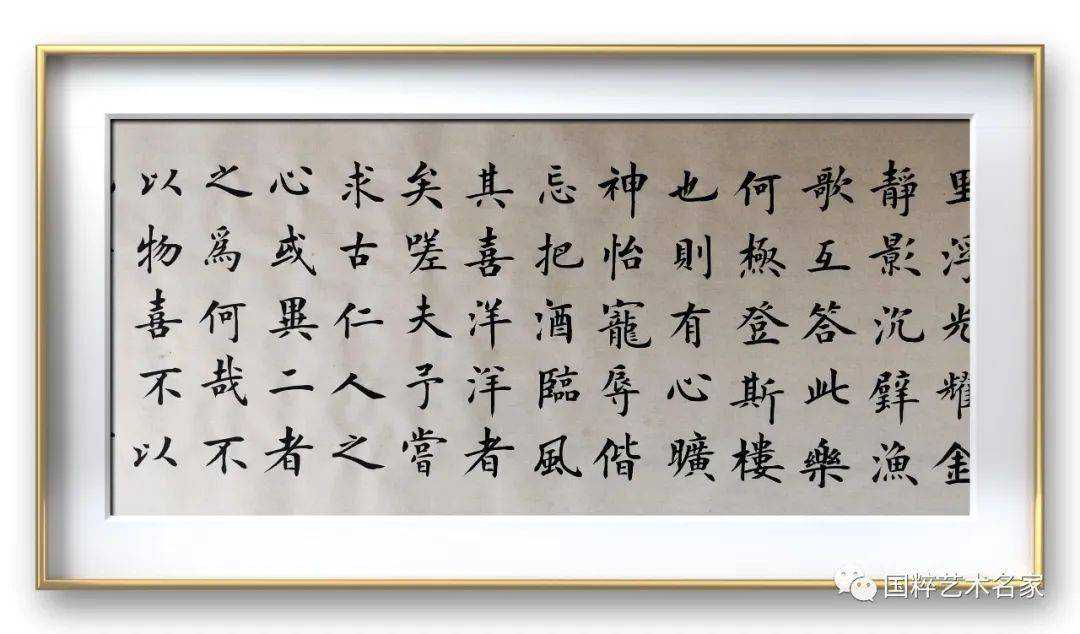 里浮光耀金
靜影沉璧漁
歌互答此樂
何極登斯樓
也則有心曠
神怡寵辱偕
忘把酒臨風
其喜洋洋者
矣嗟夫予嘗
求古仁人之
心或異二者
之爲何哉不
以物喜不以
国粹艺术名家